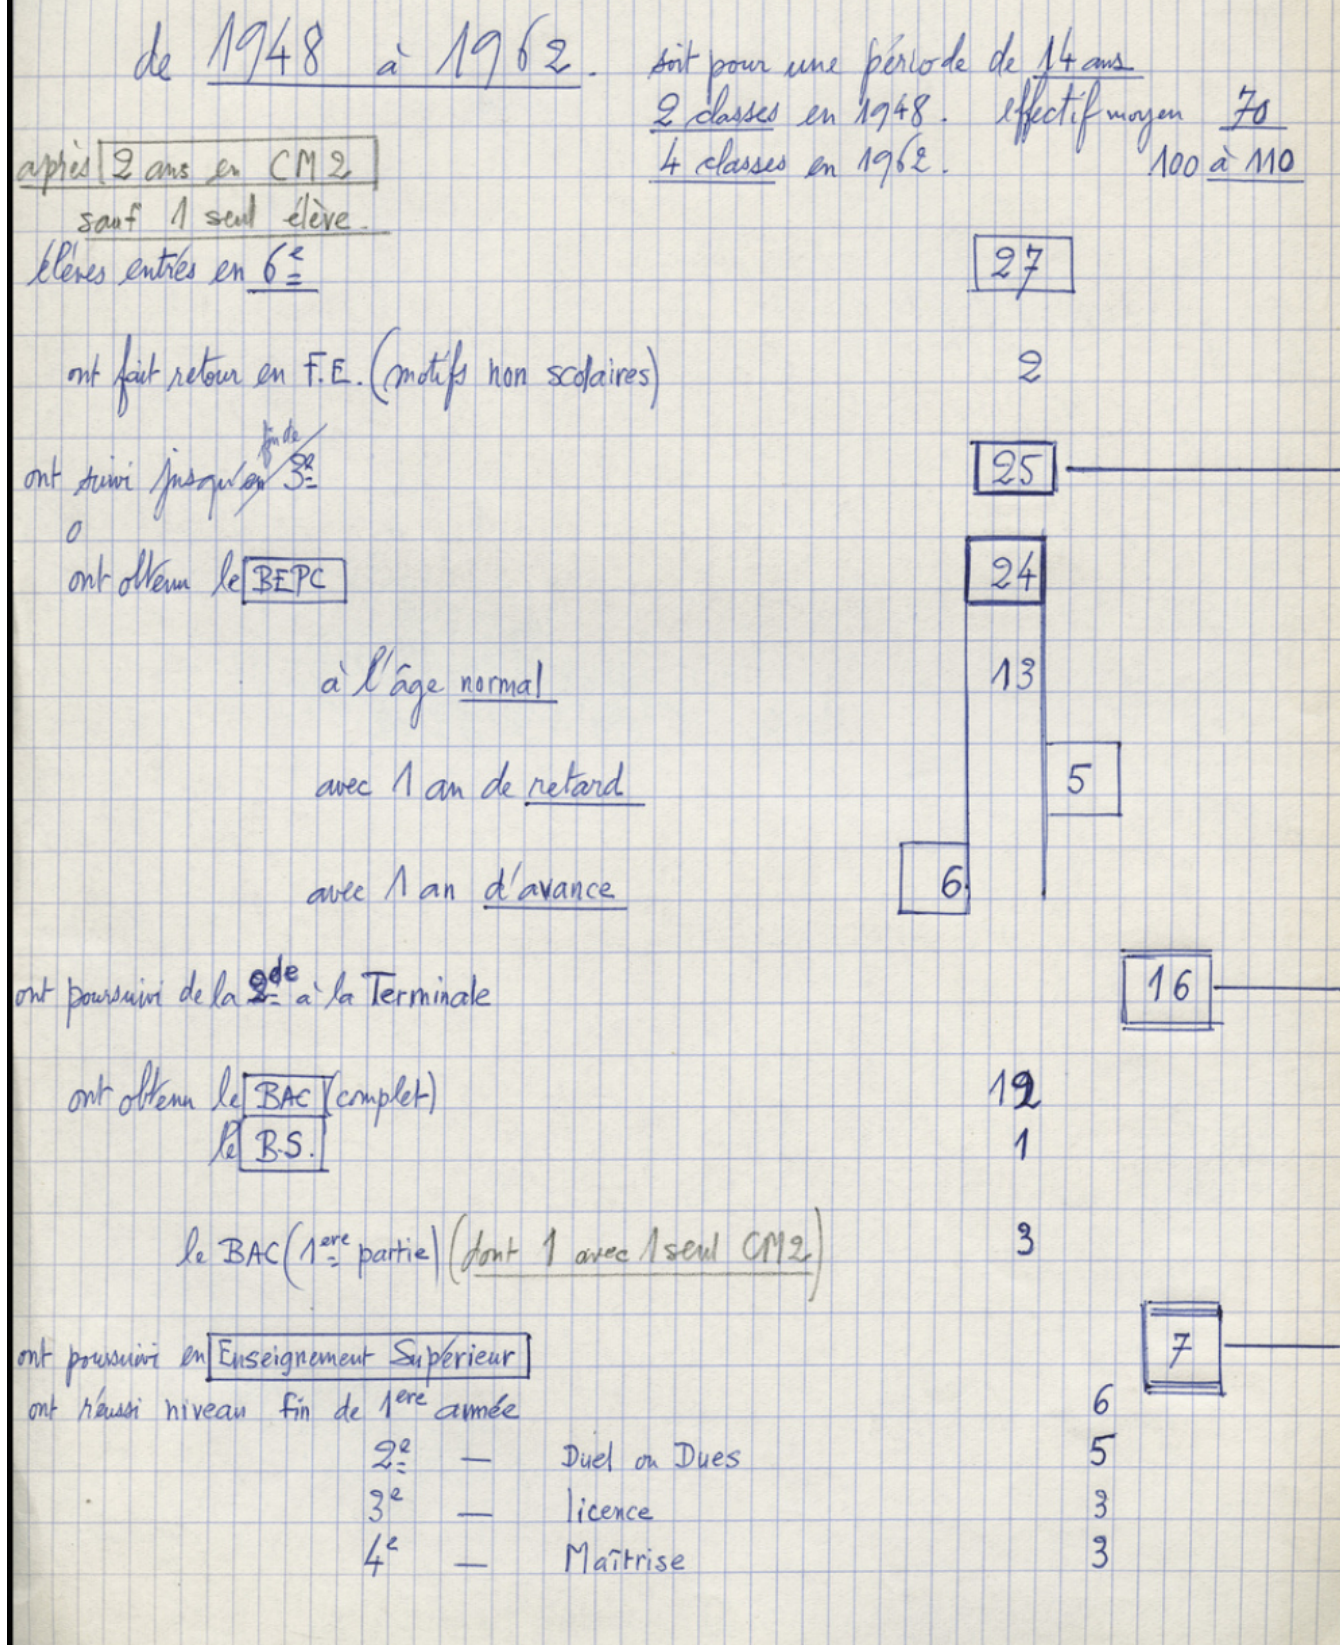 de 1948 à 1962. soit pour une période de 14 ans
2 classes en 1948. effectif moyen 70
4 classes en 1962. 100 à 110
après 2 ans en CM2
sauf 1 seul élève.
élèves entrés en 6e 27
ont fait retour en F.E. (motifs non scolaires) 2
fin de
ont suivi jusqu'en 3e 25
0
ont obtenu le BEPC 24
à l'âge normal 13
avec 1 an de retard 5
avec 1 an d'avance 6
ont poursuivi de la 2de à la Terminale 16
ont obtenu le BAC (complet) 12
le B.S. 1
le BAC (1ere partie) (dont 1 avec 1 seul CM2) 3
ont poursuivi en Enseignement Supérieur 7
ont réussi niveau fin de 1ere année 6
2e — Duel ou Dues 5
3e — licence 3
4e — Maîtrise 3